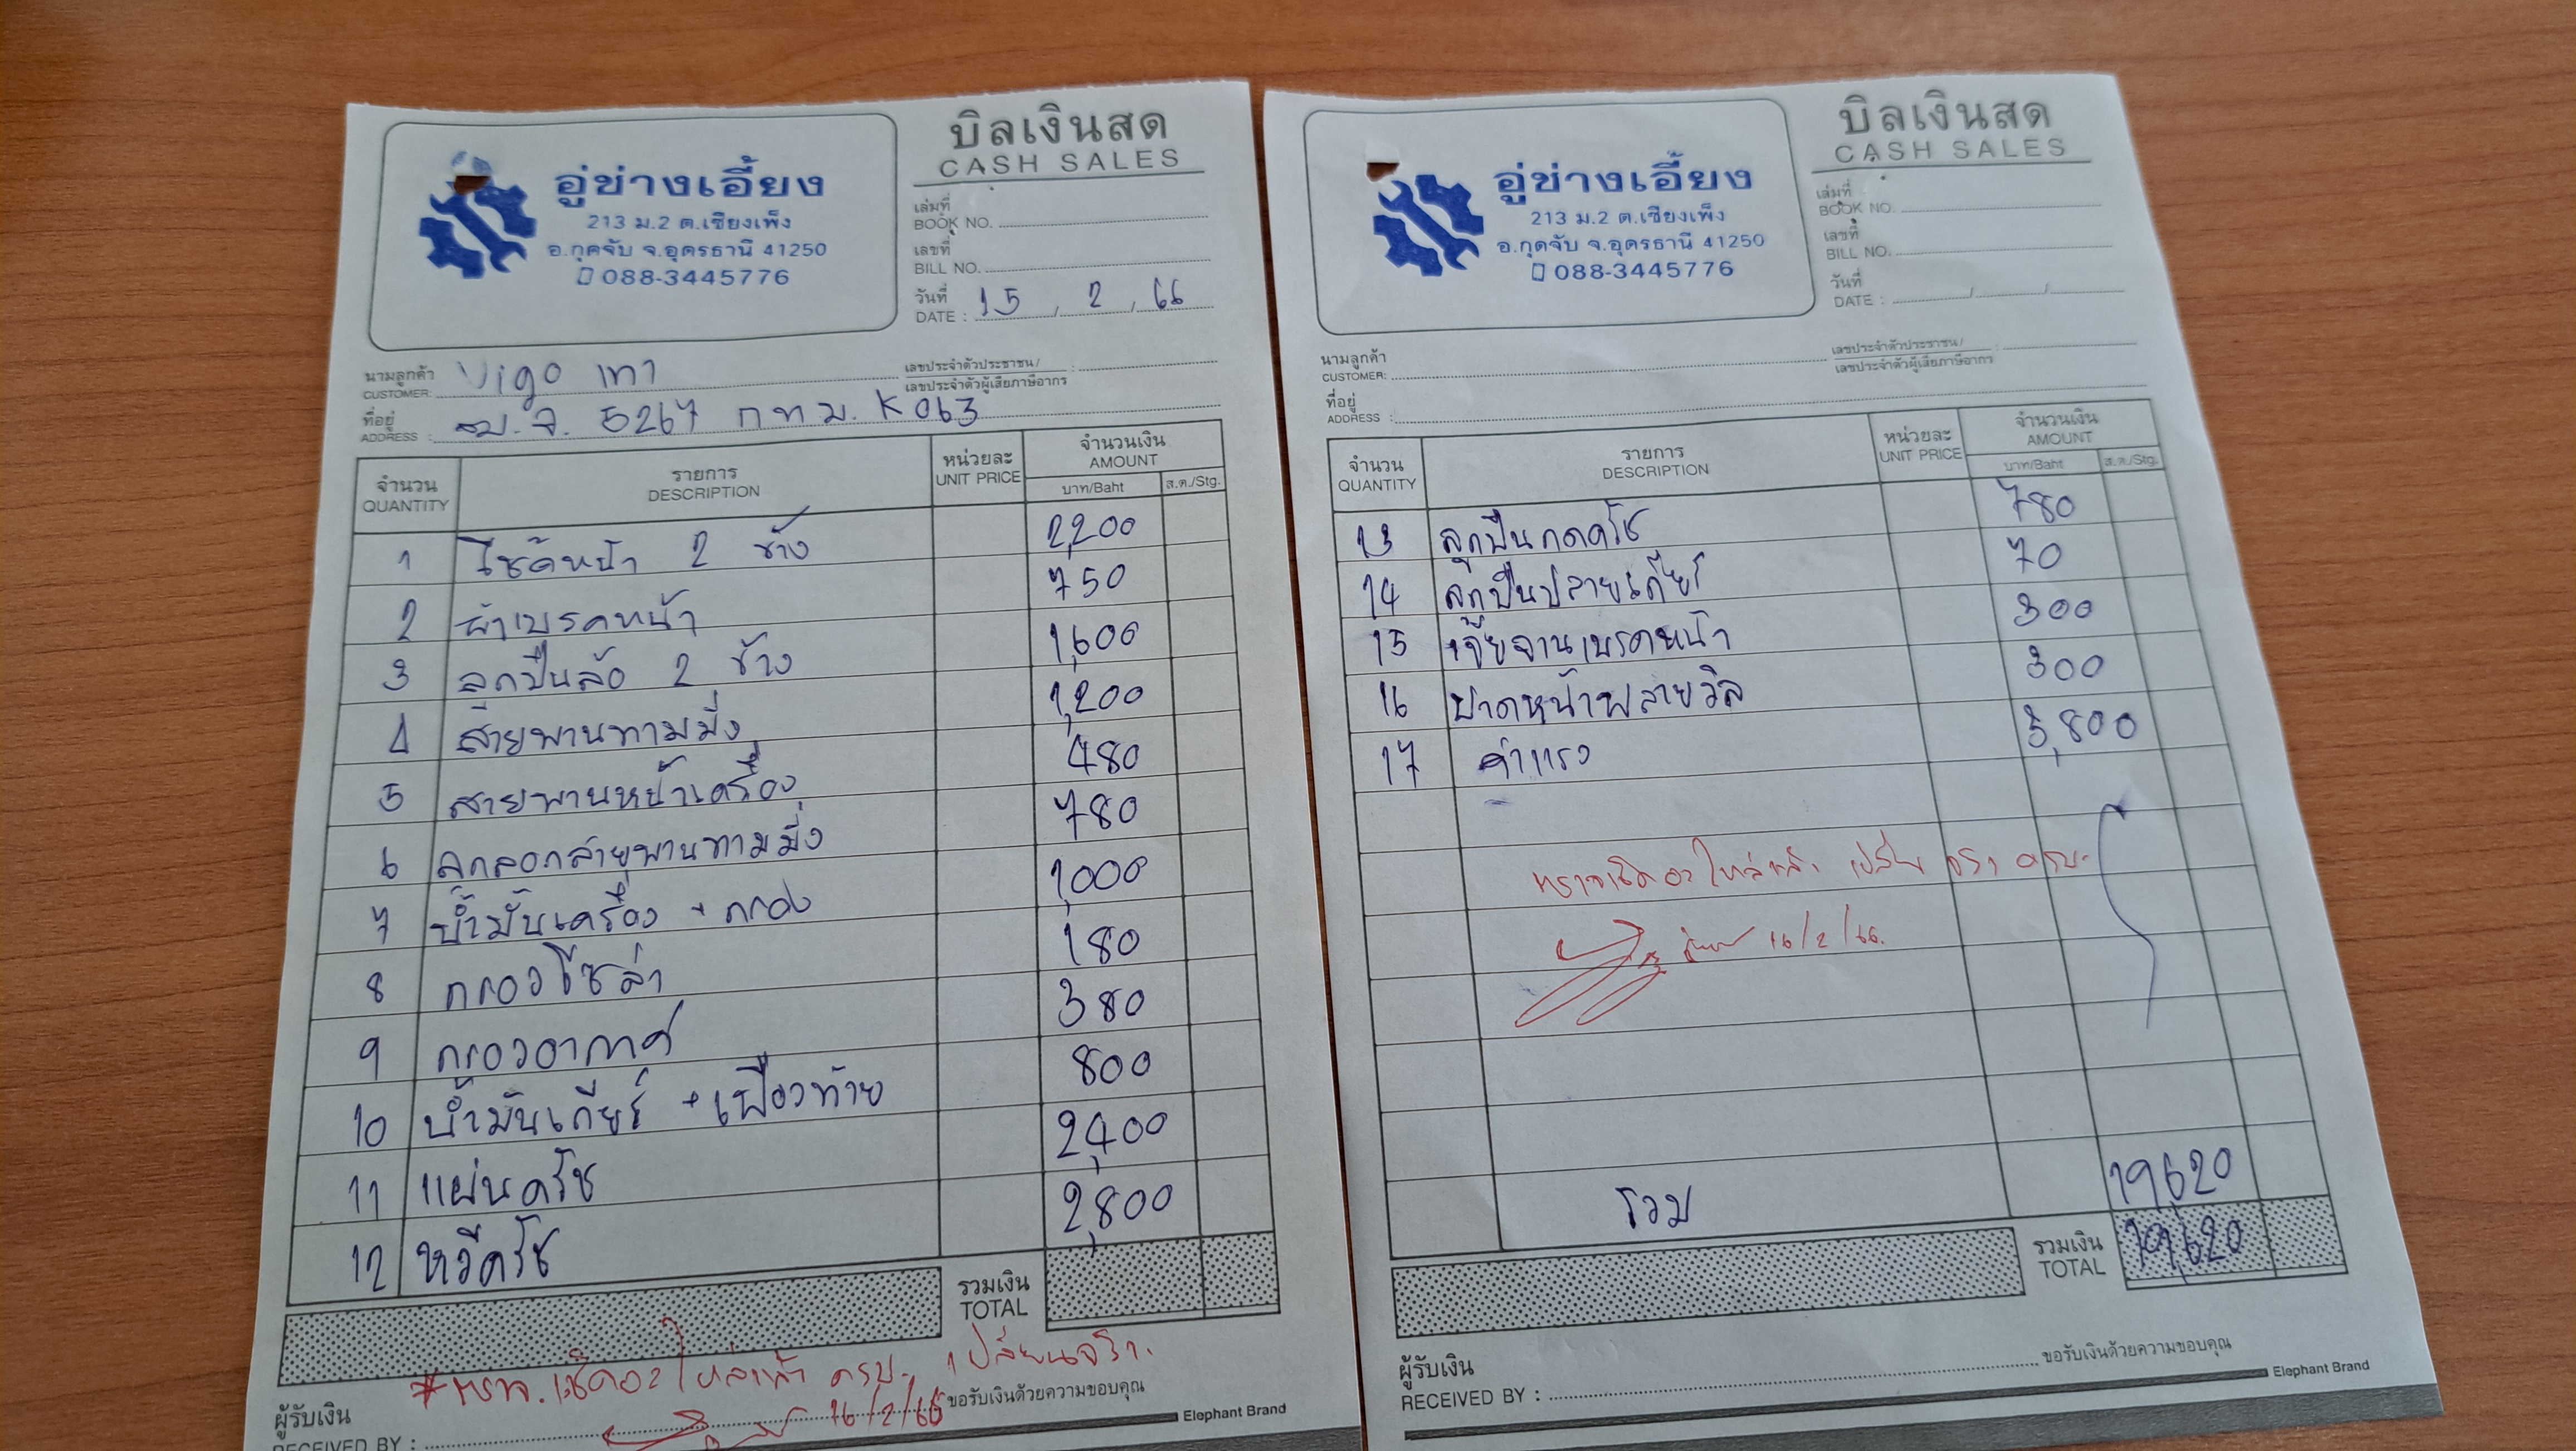 อู่ช่างเอี้ยง
213 ม.2 ต.เชียงเพ็ง
อ.กุดจับ จ.อุดรธานี 41250
088-3445776
บิลเงินสด
CASH SALES
เล่มที่
BOOK NO.
เลขที่
BILL NO.
วันที่
DATE : 15 / 2 / 66
นามลูกค้า
CUSTOMER: Vigo เทา
เลขประจำตัวประชาชน/
เลขประจำตัวผู้เสียภาษีอากร :
ที่อยู่
ADDRESS : 5267 กทม. K063
จำนวน รายการ หน่วยละ จำนวนเงิน
QUANTITY DESCRIPTION UNIT PRICE AMOUNT
บาท/Baht ส.ต./Stg.
1 โช๊คหน้า 2 ข้าง 2,200
2 ผ้าเบรคหน้า 750
3 ลูกปืนล้อ 2 ข้าง 1,600
4 สายพานทามมิ่ง 1,200
5 สายพานหน้าเครื่อง 480
6 ลูกลอกสายพานทามมิ่ง 780
7 น้ำมันเครื่อง + กรอง 1,000
8 กรองโซล่า 180
9 กรองอากาศ 380
10 น้ำมันเกียร์ + เฟืองท้าย 800
11 แผ่นครัช 2,400
12 หวีครัช 2,800
รวมเงิน
TOTAL
#ตรวจเช็คอะไหล่แล้ว ครบ เปลี่ยนจริง.
16/2/66
ผู้รับเงิน
RECEIVED BY :
ขอรับเงินด้วยความขอบคุณ
Elephant Brand
อู่ช่างเอี้ยง
213 ม.2 ต.เชียงเพ็ง
อ.กุดจับ จ.อุดรธานี 41250
088-3445776
บิลเงินสด
CASH SALES
เล่มที่
BOOK NO.
เลขที่
BILL NO.
วันที่
DATE : / /
นามลูกค้า
CUSTOMER:
เลขประจำตัวประชาชน/
เลขประจำตัวผู้เสียภาษีอากร :
ที่อยู่
ADDRESS :
จำนวน รายการ หน่วยละ จำนวนเงิน
QUANTITY DESCRIPTION UNIT PRICE AMOUNT
บาท/Baht ส.ต./Stg.
13 ลูกปืนกดครัช 780
14 ลูกปืนปลายเกียร์ 70
15 เจียจานเบรคหน้า 300
16 ปาดหน้าฟลายวีล 300
17 ค่าแรง 3,800
ตรวจเช็คอะไหล่แล้ว เปลี่ยน จริง ครบ
16/2/66.
รวม 19,620
รวมเงิน
TOTAL 19,620
ผู้รับเงิน
RECEIVED BY :
ขอรับเงินด้วยความขอบคุณ
Elephant Brand